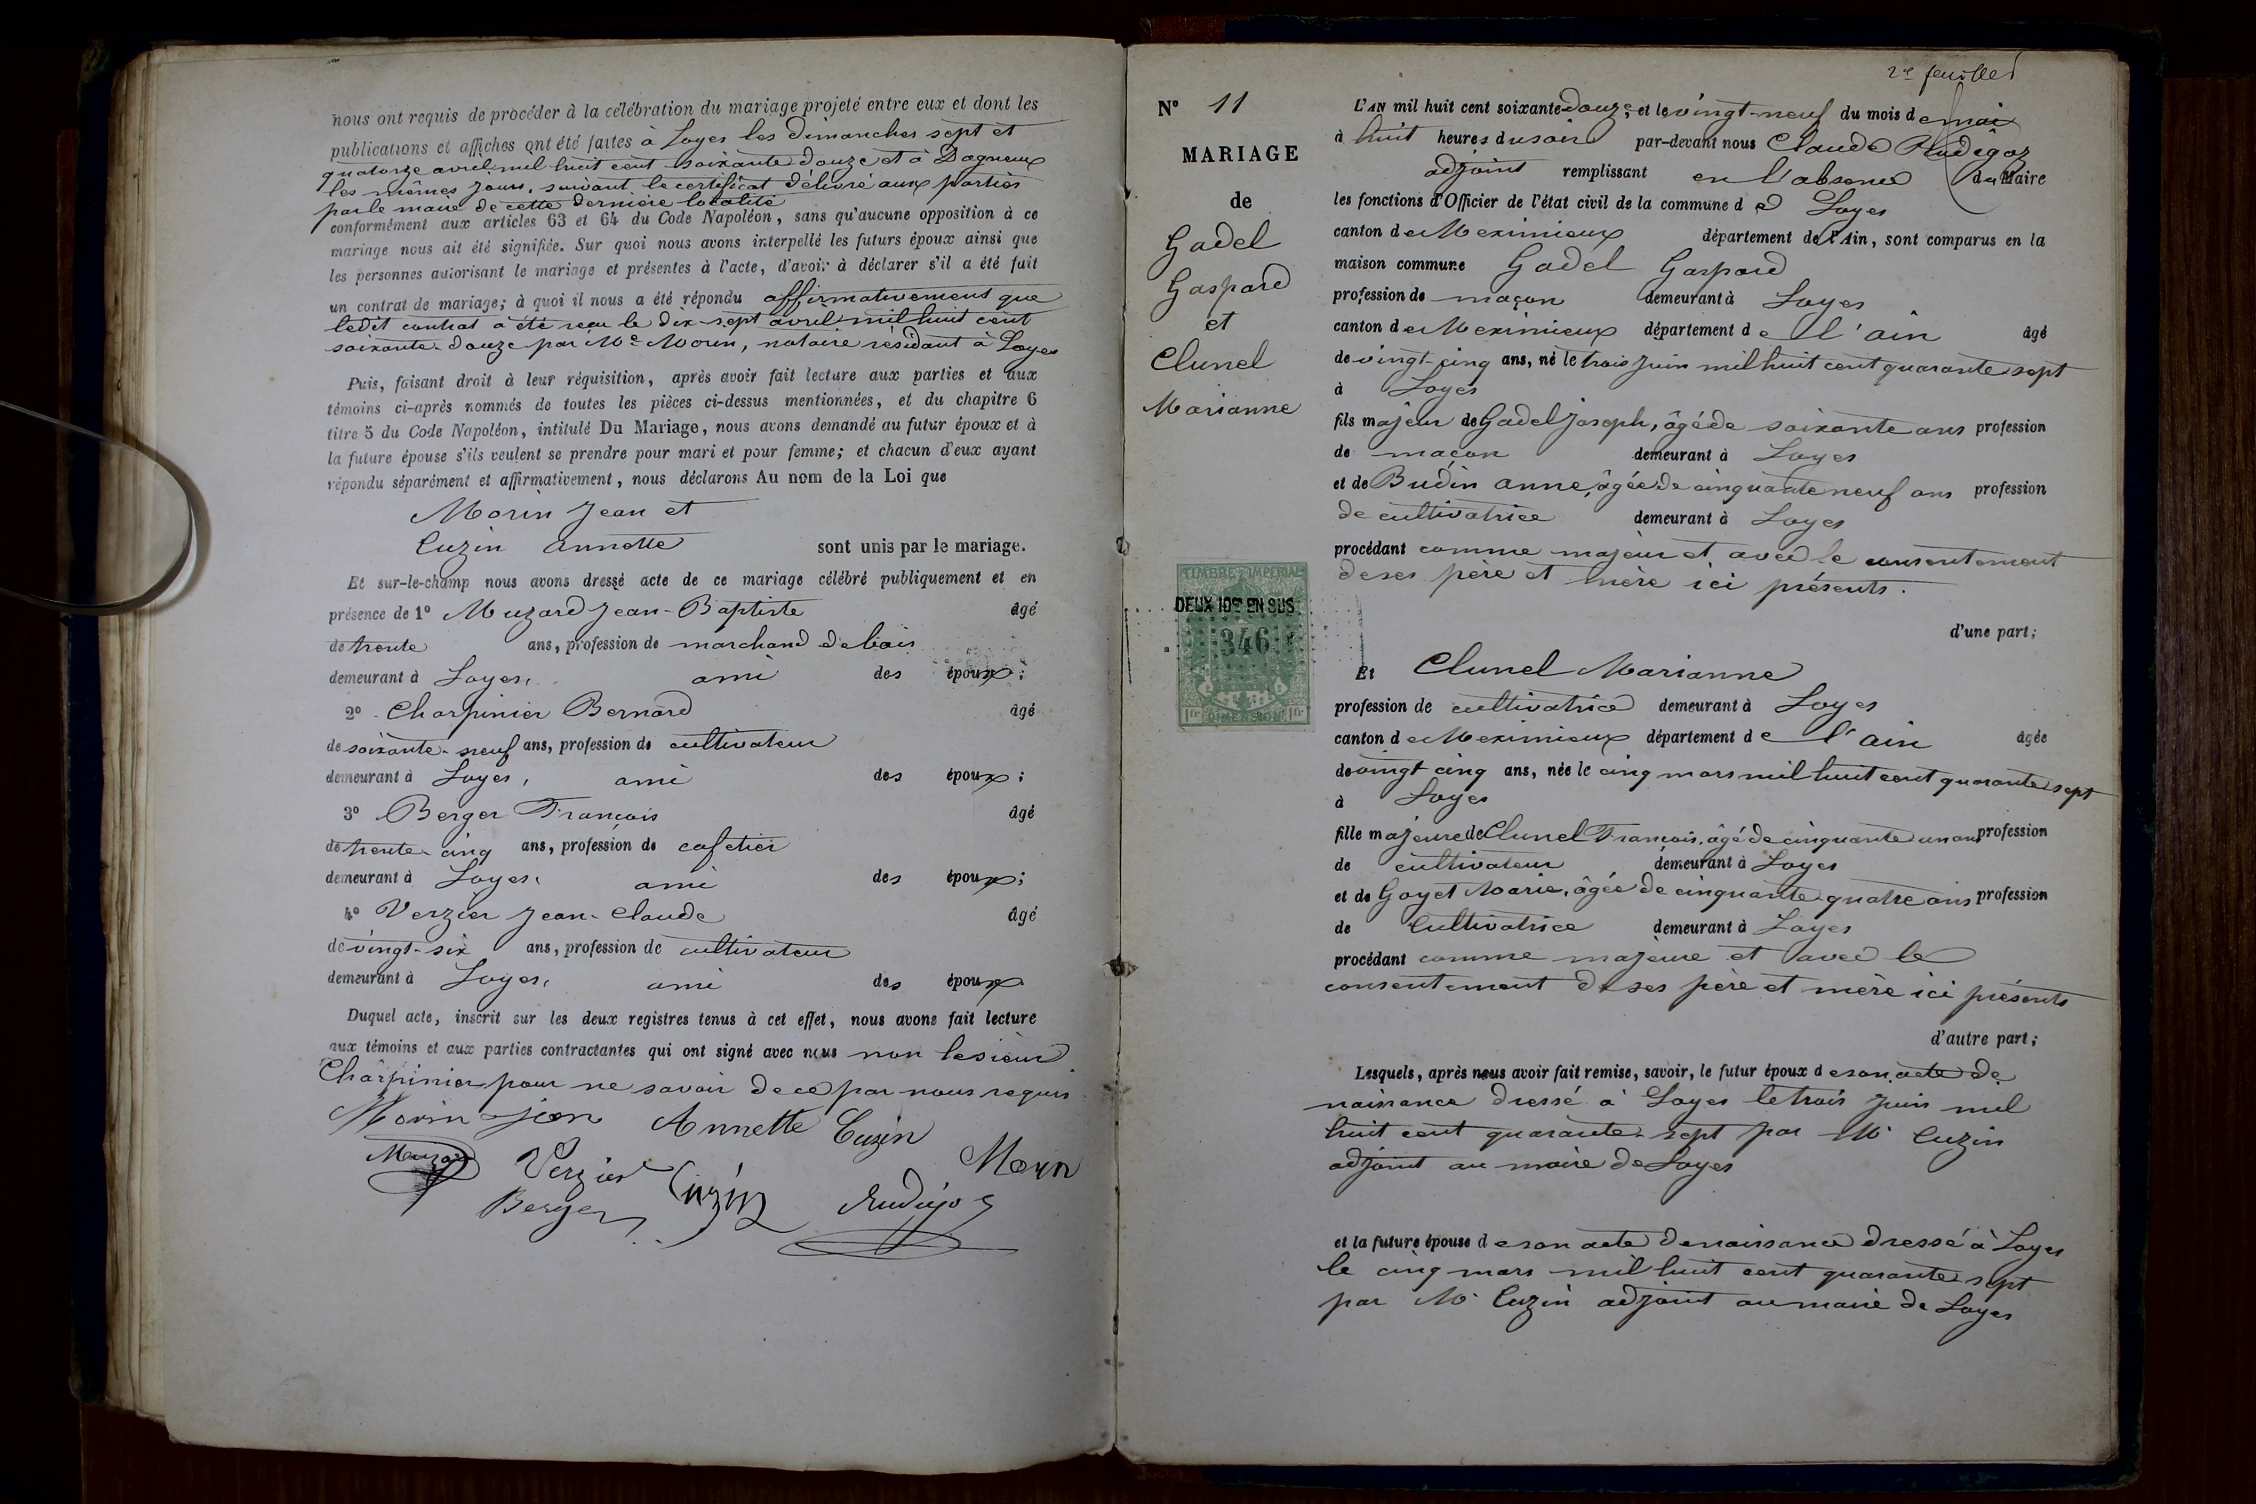 nous ont requis de procéder à la célébration du mariage projeté entre eux et dont les
publications et affiches ont été faites à Loyes les dimanches sept et
quatorze avril mil huit cent soixante douze et à Dagneux
les mêmes jours, suivant le certificat délivré aux parties
par le maire de cette dernière localité
conformément aux articles 63 et 64 du Code Napoléon, sans qu'aucune opposition à ce
mariage nous ait été signifiée. Sur quoi nous avons interpellé les futurs époux ainsi que
les personnes autorisant le mariage et présentes à l'acte, d'avoir à déclarer s'il a été fait
un contrat de mariage; à quoi il nous a été répondu affirmativement que
ledit contrat a été reçu le dix-sept avril mil huit cent
soixante-douze par Me Morin, notaire résidant à Loyes
Puis, faisant droit à leur réquisition, après avoir fait lecture aux parties et aux
témoins ci-après nommés de toutes les pièces ci-dessus mentionnées, et du chapitre 6
titre 5 du Code Napoléon, intitulé Du Mariage, nous avons demandé au futur époux et à
la future épouse s'ils veulent se prendre pour mari et pour femme; et chacun d'eux ayant
répondu séparément et affirmativement, nous déclarons Au nom de la Loi que
Morin Jean et
Cuzin annette sont unis par le mariage.
Et sur-le-champ nous avons dressé acte de ce mariage célébré publiquement et en
présence de 1° Muzard Jean-Baptiste âgé
de trente ans, profession de marchand de bois
demeurant à Loyes, ami des époux;
2° Charpinier Bernard âgé
de soixante-neuf ans, profession de cultivateur
demeurant à Loyes, ami des époux;
3° Berger François âgé
de trente-cinq ans, profession de cafetier
demeurant à Loyes, ami des époux;
4° Verzier Jean-Claude âgé
de vingt-six ans, profession de cultivateur
demeurant à Loyes, ami des époux
Duquel acte, inscrit sur les deux registres tenus à cet effet, nous avons fait lecture
aux témoins et aux parties contractantes qui ont signé avec nous non le sieur
Charpinier pour ne savoir de ce par nous requis
Morin jean Annette Cuzin
Muzard Verzier Cuzin Morin
Berger Rudigoz
2e feuille
N° 11
MARIAGE
de
Gadel
Gaspard
et
Clunel
Marianne
TIMBRE IMPERIAL
DEUX 10es EN SUS
346
1 fr DIMENSION 1 fr
L'AN mil huit cent soixante-douze, et le vingt-neuf du mois de mai
à huit heures du soir par-devant nous Claude Rudigoz
adjoint remplissant en l'absence du Maire
les fonctions d'Officier de l'état civil de la commune de Loyes
canton de Meximieux département de l'Ain, sont comparus en la
maison commune Gadel Gaspard
profession de maçon demeurant à Loyes
canton de Meximieux département de l'ain âgé
de vingt-cinq ans, né le trois Juin mil huit cent quarante sept
à Loyes
fils majeur de Gadel Joseph, âgé de soixante ans profession
de maçon demeurant à Loyes
et de Budin anne, âgée de cinquante neuf ans profession
de cultivatrice demeurant à Loyes
procédant comme majeur et avec le consentement
de ses père et mère ici présents.
d'une part;
Et Clunel Marianne
profession de cultivatrice demeurant à Loyes
canton de Meximieux département de l'ain âgée
de vingt cinq ans, née le cinq mars mil huit cent quarante sept
à Loyes
fille majeure de Clunel François, âgé de cinquante un ans profession
de cultivateur demeurant à Loyes
et de Goyet Marie, âgée de cinquante quatre ans profession
de Cultivatrice demeurant à Loyes
procédant comme majeure et avec le
consentement de ses père et mère ici présents
d'autre part;
Lesquels, après nous avoir fait remise, savoir, le futur époux de son acte de
naissance dressé à Loyes le trois Juin mil
huit cent quarante-sept par Mr Cuzin
adjoint au maire de Loyes
et la future épouse de son acte de naissance dressé à Loyes
le cinq mars mil huit cent quarante sept
par Mr Cuzin adjoint au maire de Loyes